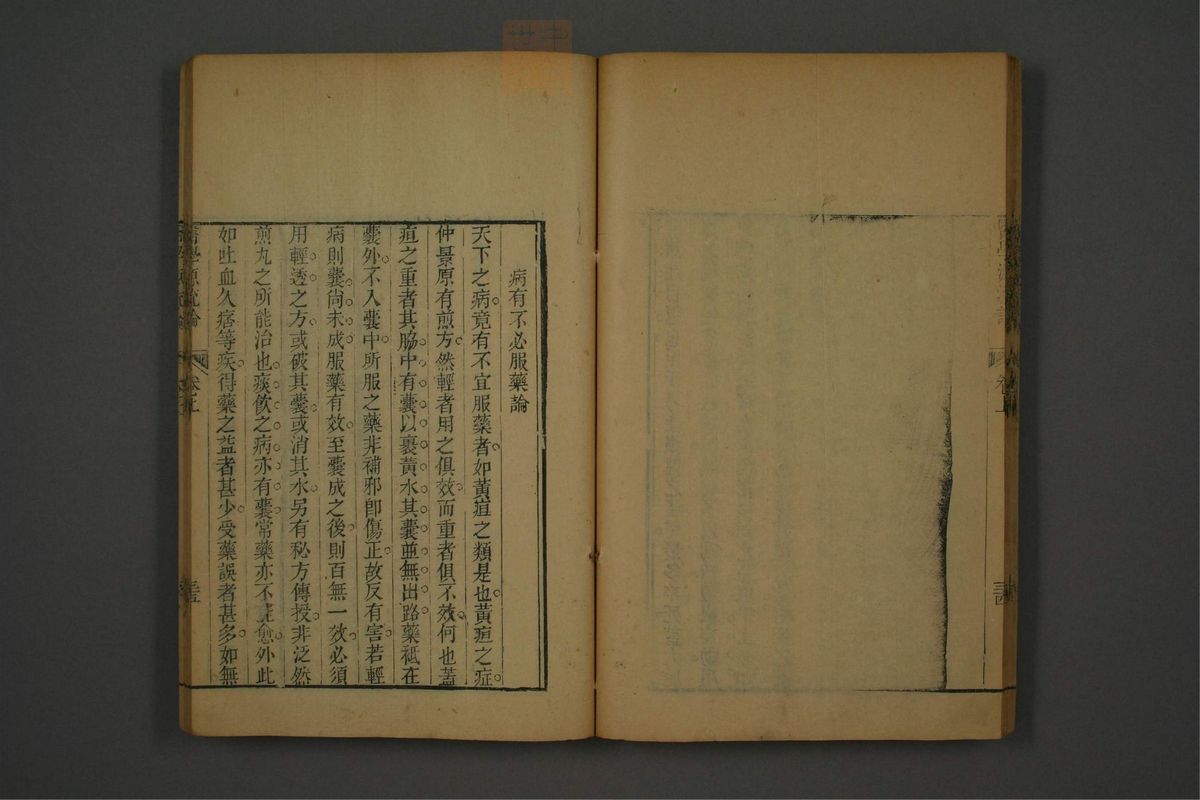 病有不必服藥論
天下之病竟有不宜服藥者如黃疸之類是也黃疸之症
仲景原有煎方然輕者用之俱效而重者俱不效何也蓋
疸之重者其脇中有囊以裹黃水其囊並無出路藥祗在
囊外不入囊中所服之藥非補邪卽傷正故反有害若輕
病則囊尚未成服藥有效至囊成之後則百無一效必須
用輕透之方或破其囊或消其水另有秘方傳授非泛然
煎丸之所能治也痰飲之病亦有囊常藥亦不能愈外此
如吐血久痞等疾得藥之益者甚少受藥誤者甚多如無
醫學源流論
卷上